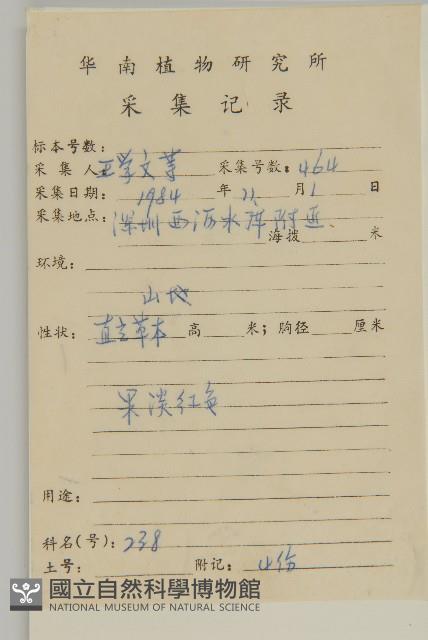 华南植物研究所
采集记录
标本号数：
采集人：王学文等 采集号数：464
采集日期： 1984 年 11 月 1 日
采集地点：深圳西沥水库附近
海拨 米
环境：
山地
性状：直立草本 高 米；胸径 厘米
果淡红色
用途：
科名(号)：238
土号： 附记：4份
國立自然科學博物館
NATIONAL MUSEUM OF NATURAL SCIENCE